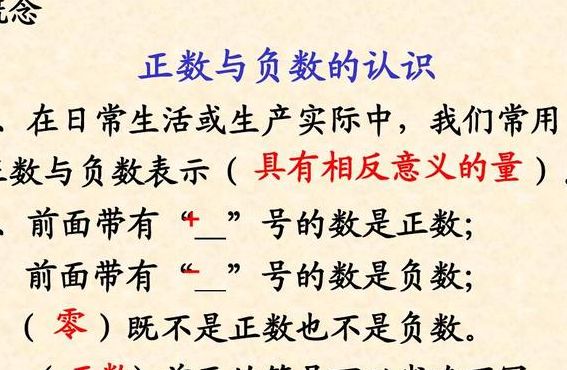 概念
正数与负数的认识
、在日常生活或生产实际中，我们常用
正数与负数表示（具有相反意义的量）
、前面带有“+”号的数是正数；
前面带有“－”号的数是负数；
（零）既不是正数也不是负数。